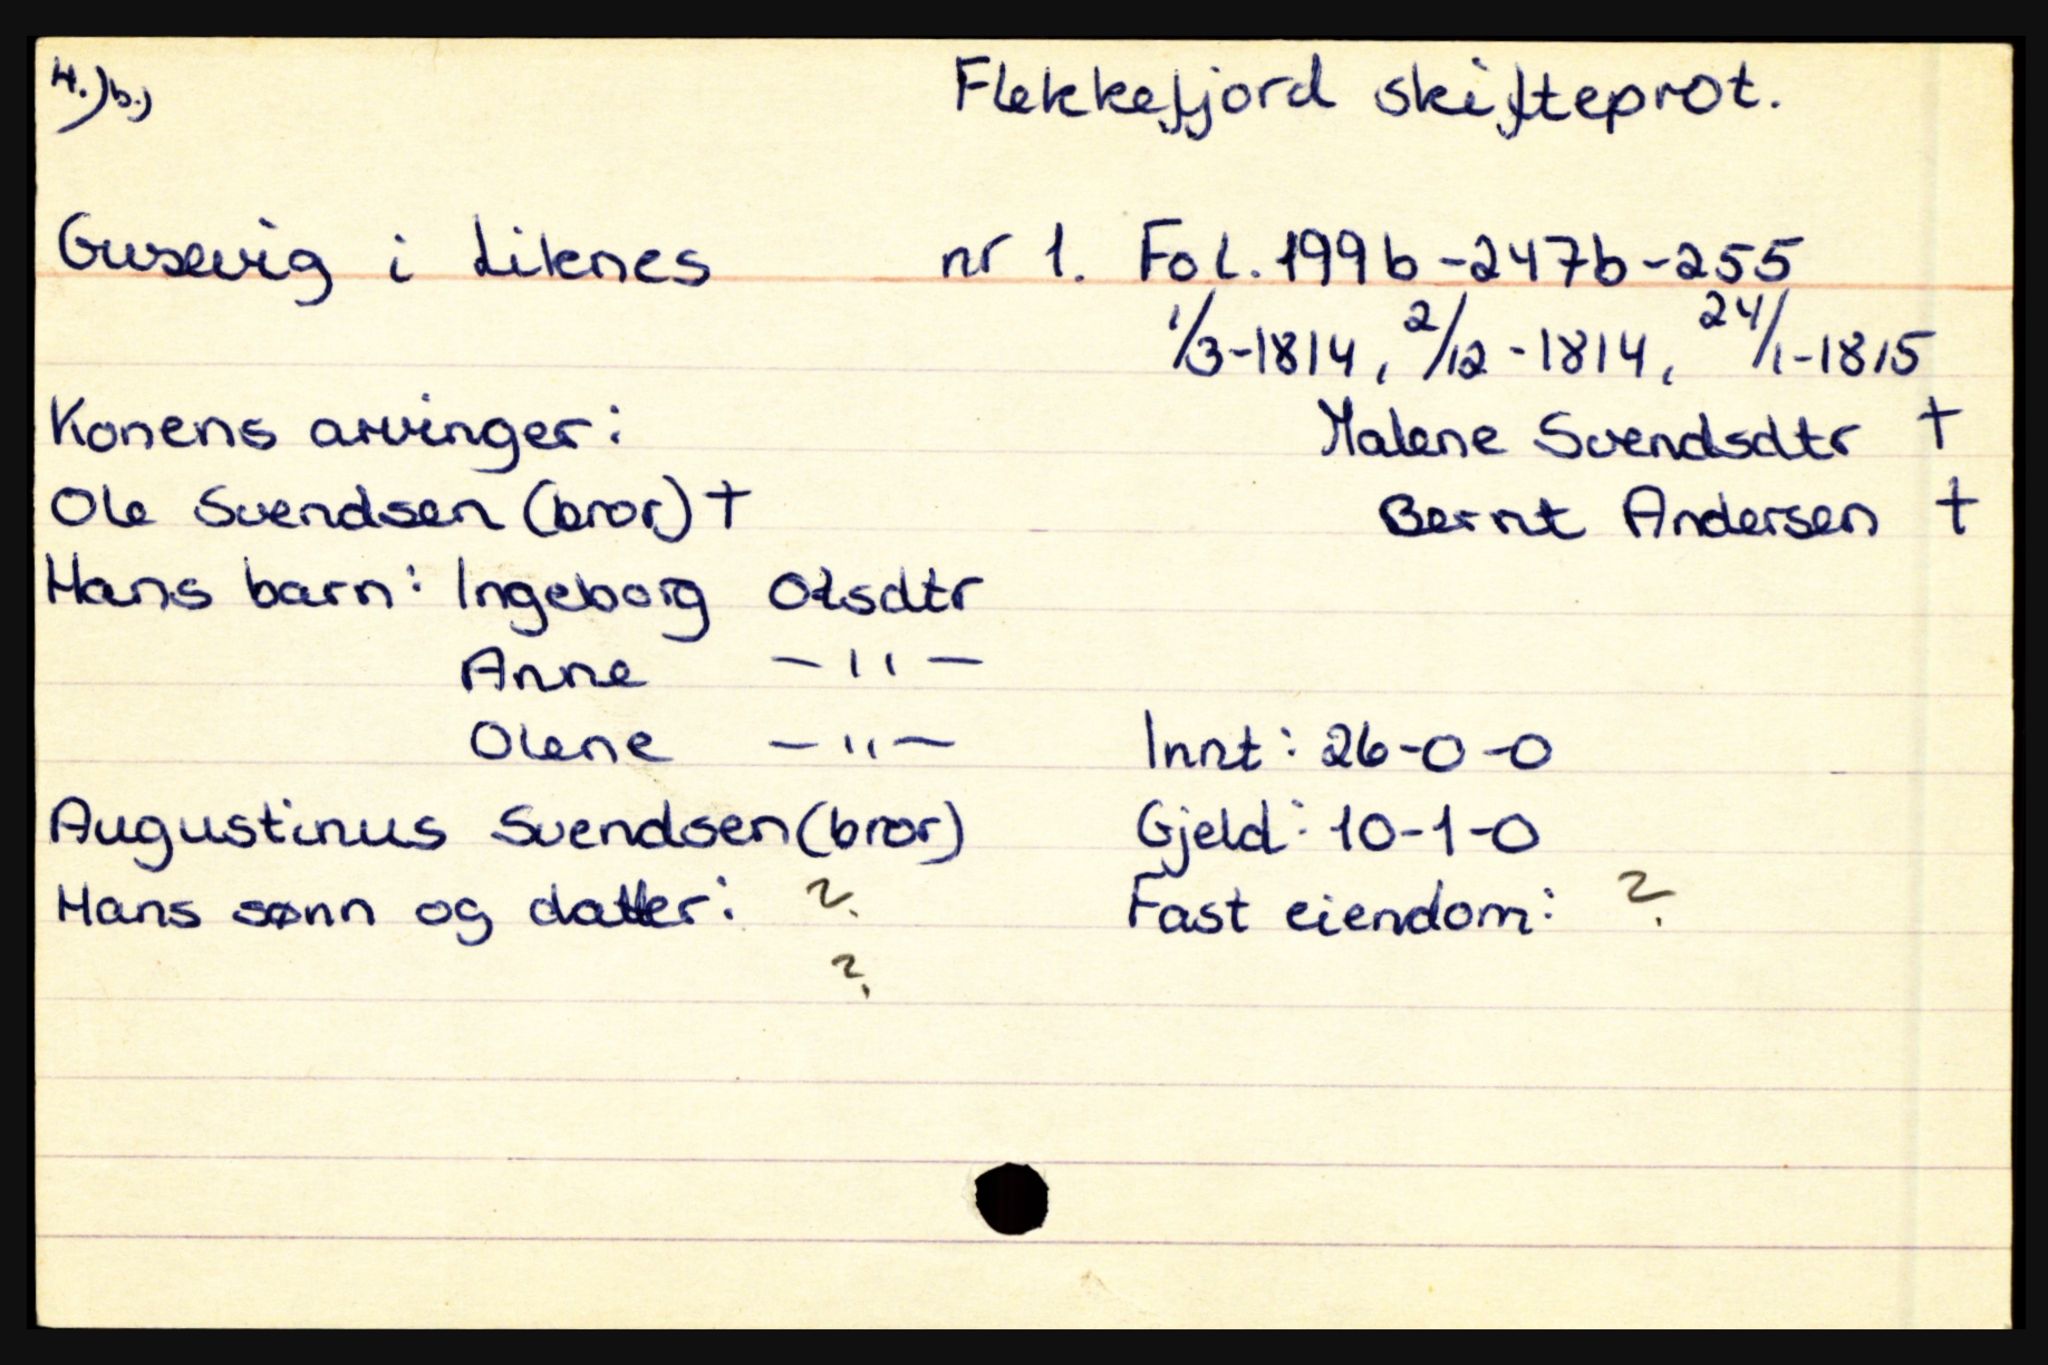 H.) b.) Flekkefjord skifteprot.
Gusevig i Liknes nr 1. Fol. 199b-247b-255
1/3-1814, 2/12-1814, 24/1-1815
Konens arvinger: Malene Svendsdtr †
Ole Svendsen (bror) † Bernt Andersen †
Hans barn: Ingeborg Olsdtr
Anne -"-
Olene -"- Innt: 26-0-0
Augustinus Svendsen (bror) Gjeld: 10-1-0
Hans sønn og datter: ? Fast eiendom: ?
?